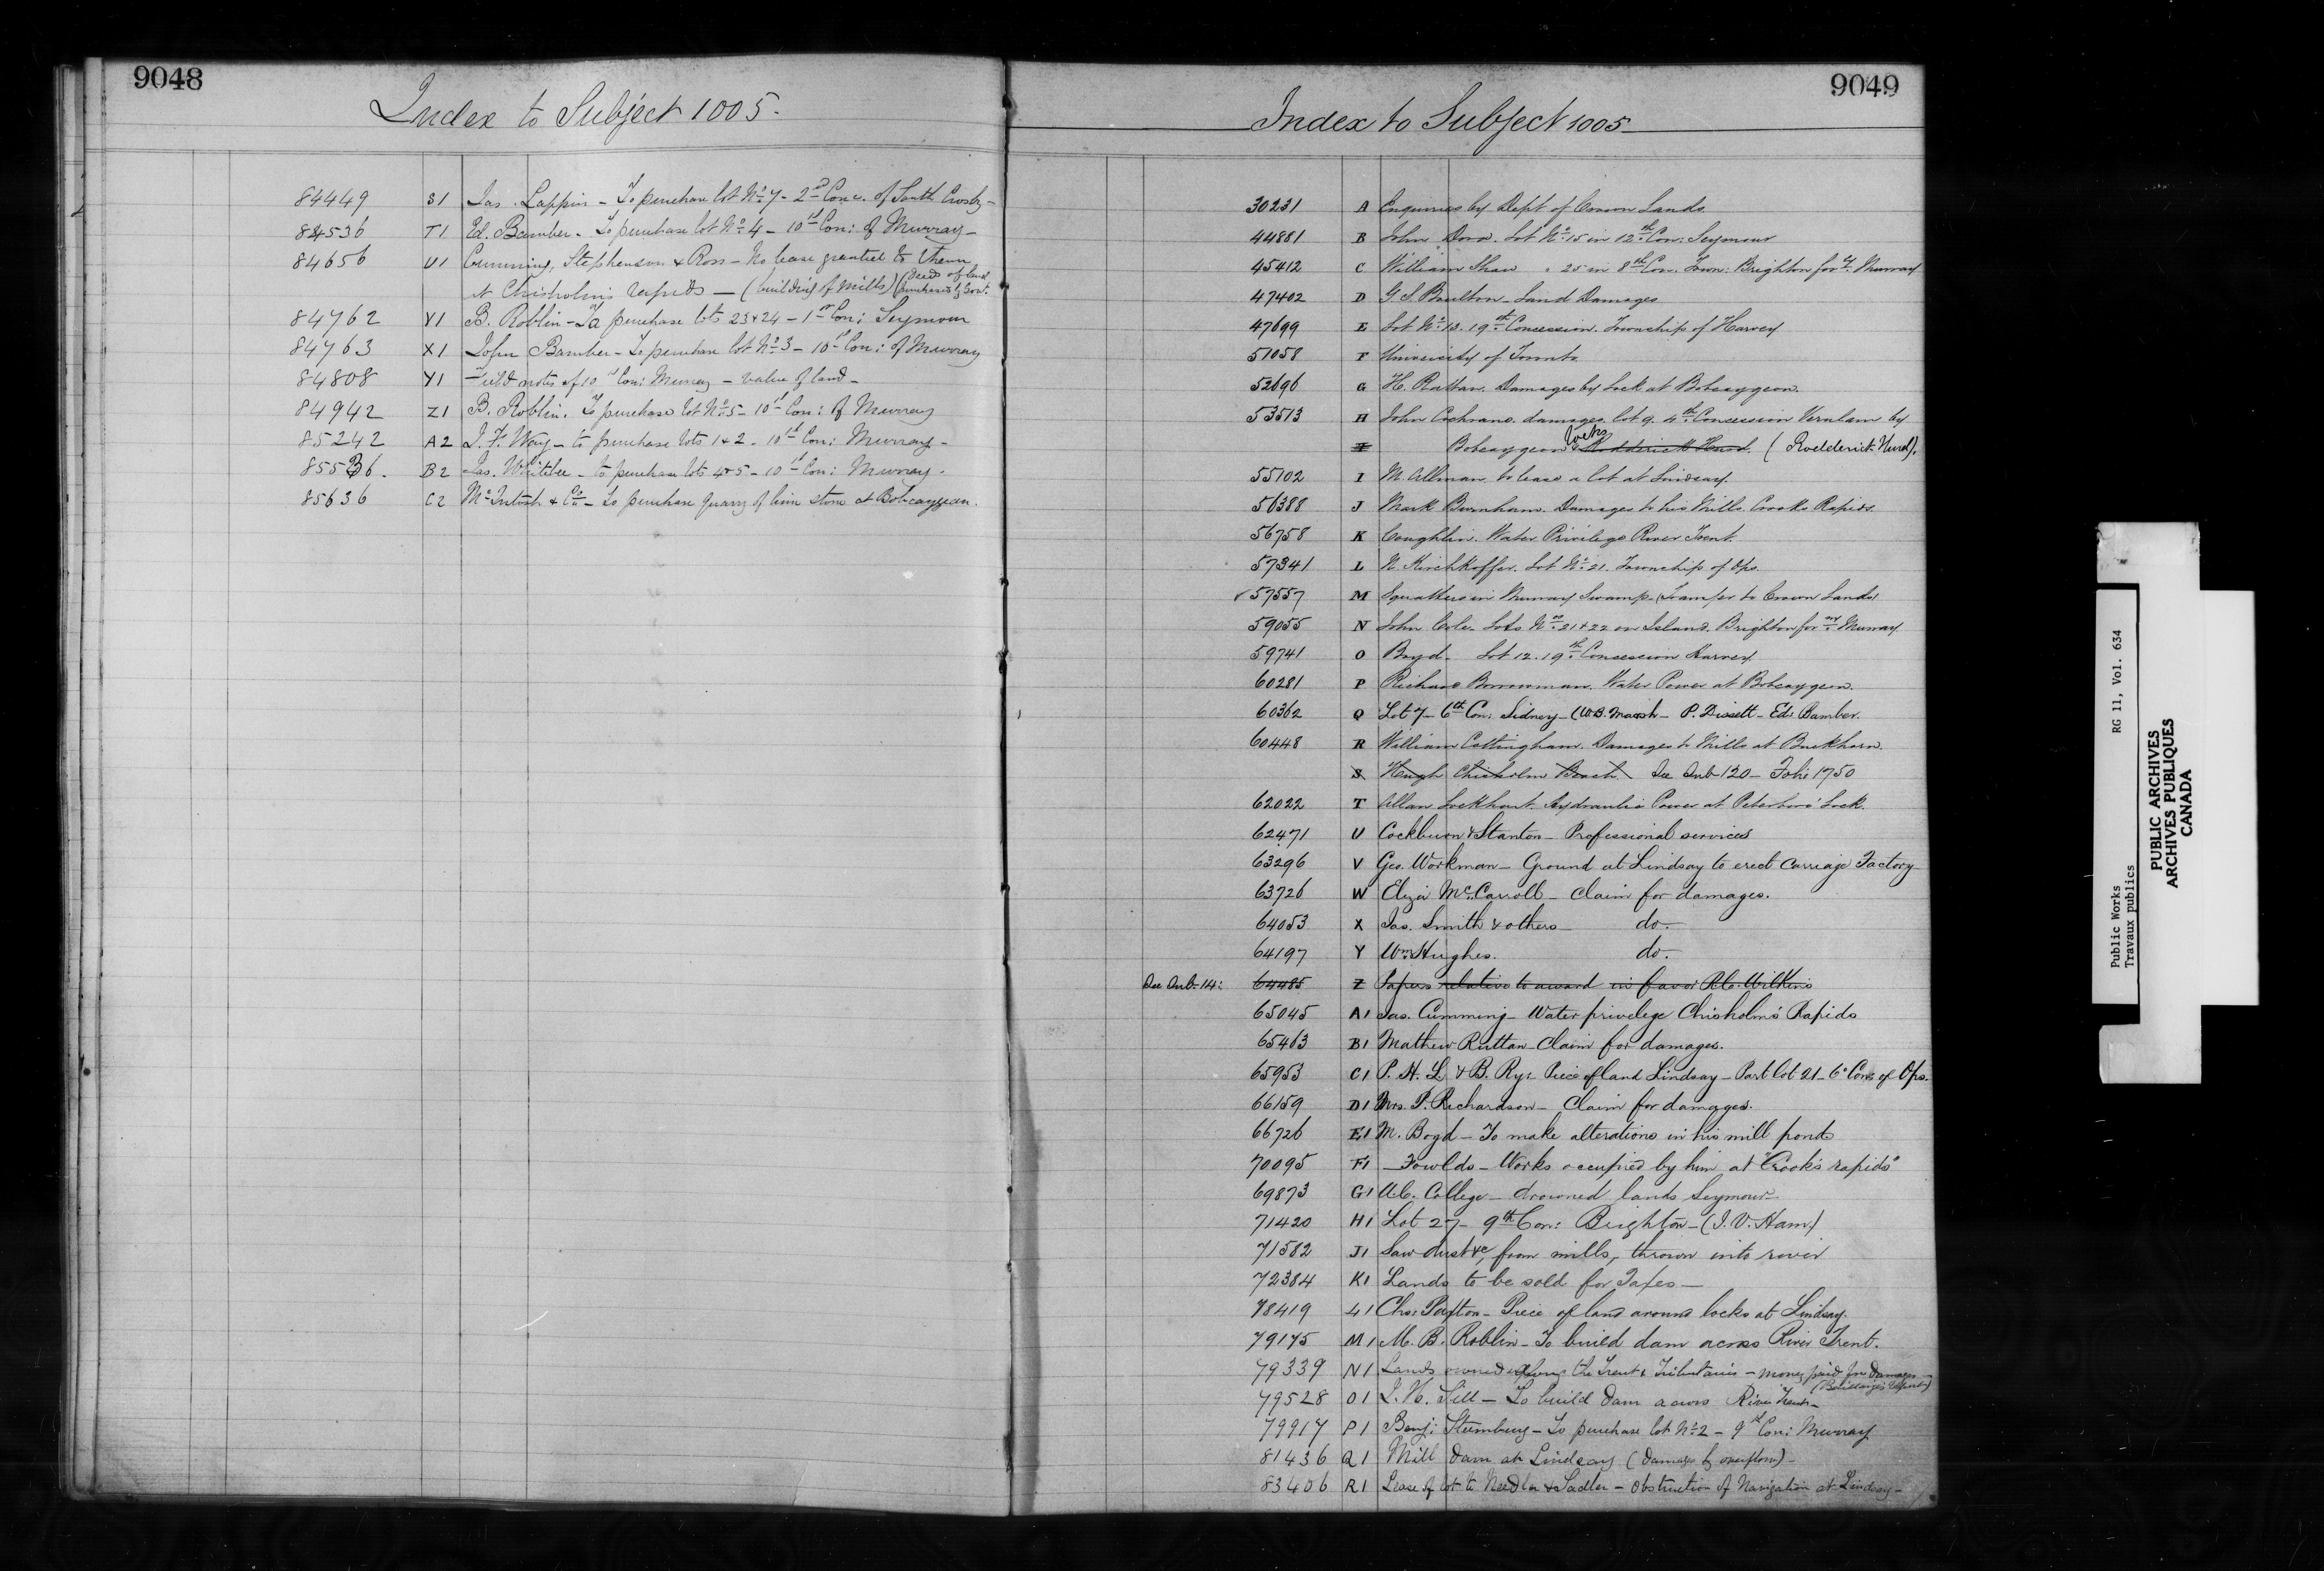 9048
Index to Subject 1005.
84449 S1 Jas. Lappin - To purchase lot No. 7 - 2nd Conc. of South Crosby -
84536 T1 Ed. Bamber - To purchase lot No. 4 - 10th Con: of Murray -
84656 U1 Cumming, Stephenson & Ross - No lease granted to them
at Chisholm's Rapids - (building of Mills) (Deeds of land purchased by Govt.
84762 V1 B. Roblin - To purchase lots 23 & 24 - 1st Con: Seymour
84763 X1 John Bamber - To purchase lot No. 3 - 10th Con: of Murray
84808 Y1 Field notes of 10th Con: Murray - value of land -
84942 Z1 B. Roblin. To purchase lot No. 5 - 10th Con: of Murray
85242 A2 J. F. Way - to purchase lots 1 & 2 - 10th Con: Murray -
85536. B2 Jas. Whitebee - to purchase lots 4 & 5 - 10th Con: Murray -
85636 C2 McIntosh & Co. - To purchase Quarry of lime stone at Bobcaygeon.
9049
Index to Subject 1005
30231 A Enquiries by Dept of Crown Lands.
44881 B John Lot No. 15 in 12th Con: Seymour
45412 C William Shaw " 25 in 8th Con. Town: Brighton for Murray
47402 D G. S. Boulton - Land Damages
47699 E Lot No. 13. 19th Concession. Township of Harvey
51058 F University of Toronto
52696 G H. Ruttan. Damages by Lock at Bobcaygeon.
53513 H John Cochrane. damages. lot 9. 4th Concession Verulam by
I Bobcaygeon Locks Rodderick Hurd. (Rodderick Hurd).
55102 I M. Allman. to lease a lot at Lindsay.
56388 J Mark Burnham. Damages to his Mills. Crooks Rapids.
56758 K Coughlin. Water Privilege River Trent.
57341 L N. Kirchhoffer. Lot No. 21. Township of Ops.
57557 M Squatters in Murray Swamp. (Transfer to Crown Lands)
59055 N John Cole. Lots No. 21 & 22 on Island. Brighton for Murray
59741 O Boyd. Lot 12. 19th Concession Harvey
60281 P Richard Borrowman. Water Power at Bobcaygeon.
60362 Q Lot 7 - 6th Con: Sidney - (W.B. Marsh - P. Dissett - Ed: Bamber.
60448 R William Cottingham. Damages to Mills at Buckhorn.
S Hough Chisholm Beach. See Sub 120 - Folio 1750
62022 T Allan Lockhart. Hydraulic Power at Peterboro' Lock.
62471 U Cockburn & Stanton - Professional services
63296 V Geo. Workman - Ground at Lindsay to erect Carriage Factory
63726 W Eliza McCarroll - Claim for damages.
64053 X Jas. Smith & others - do.
64197 Y Wm. Hughes. do.
See Sub. 14: 64485 Z Papers relative to award in favor R.C. Wilkins
65045 A1 Jas. Cumming - Water privilege Chisholm's Rapids
65463 B1 Mathew Ruttan - Claim for damages.
65953 C1 P. H. L & B. Ry: Piece of land Lindsay - Part lot 21 - 6" Con: of Ops.
66159 D1 Mrs. P. Richardson - Claim for damages.
66726 E1 M. Boyd - To make alterations in his mill ponds
70095 F1 - Fowlds - Works occupied by him at "Crook's rapids"
69873 G1 U.C. College - drowned lands Seymour
71420 H1 Lot 27 - 9th Con: Brighton - (J. V. Ham)
71582 J1 Saw dust &c, from mills, thrown into river
72384 K1 Lands to be sold for Taxes -
78419 L1 Chs: Paxton - Piece of land around locks at Lindsay.
79175 M1 M. B. Roblin - To build dam across River Trent.
79339 N1 Lands owned along the Trent & Tributaries - money paid for damages
(Report)
79528 O1 J. W. Sill - To build Dam across River Trent -
79917 P1 Benj: - To purchase lot No. 2 - 9th Con: Murray
81436 Q1 Mill dam at Lindsay (damages by overflow) -
83406 R1 Lease of lot to Needler & Sadler - Obstruction of Navigation at Lindsay -
Public Works RG 11, Vol. 634
Travaux publics
PUBLIC ARCHIVES
ARCHIVES PUBLIQUES
CANADA